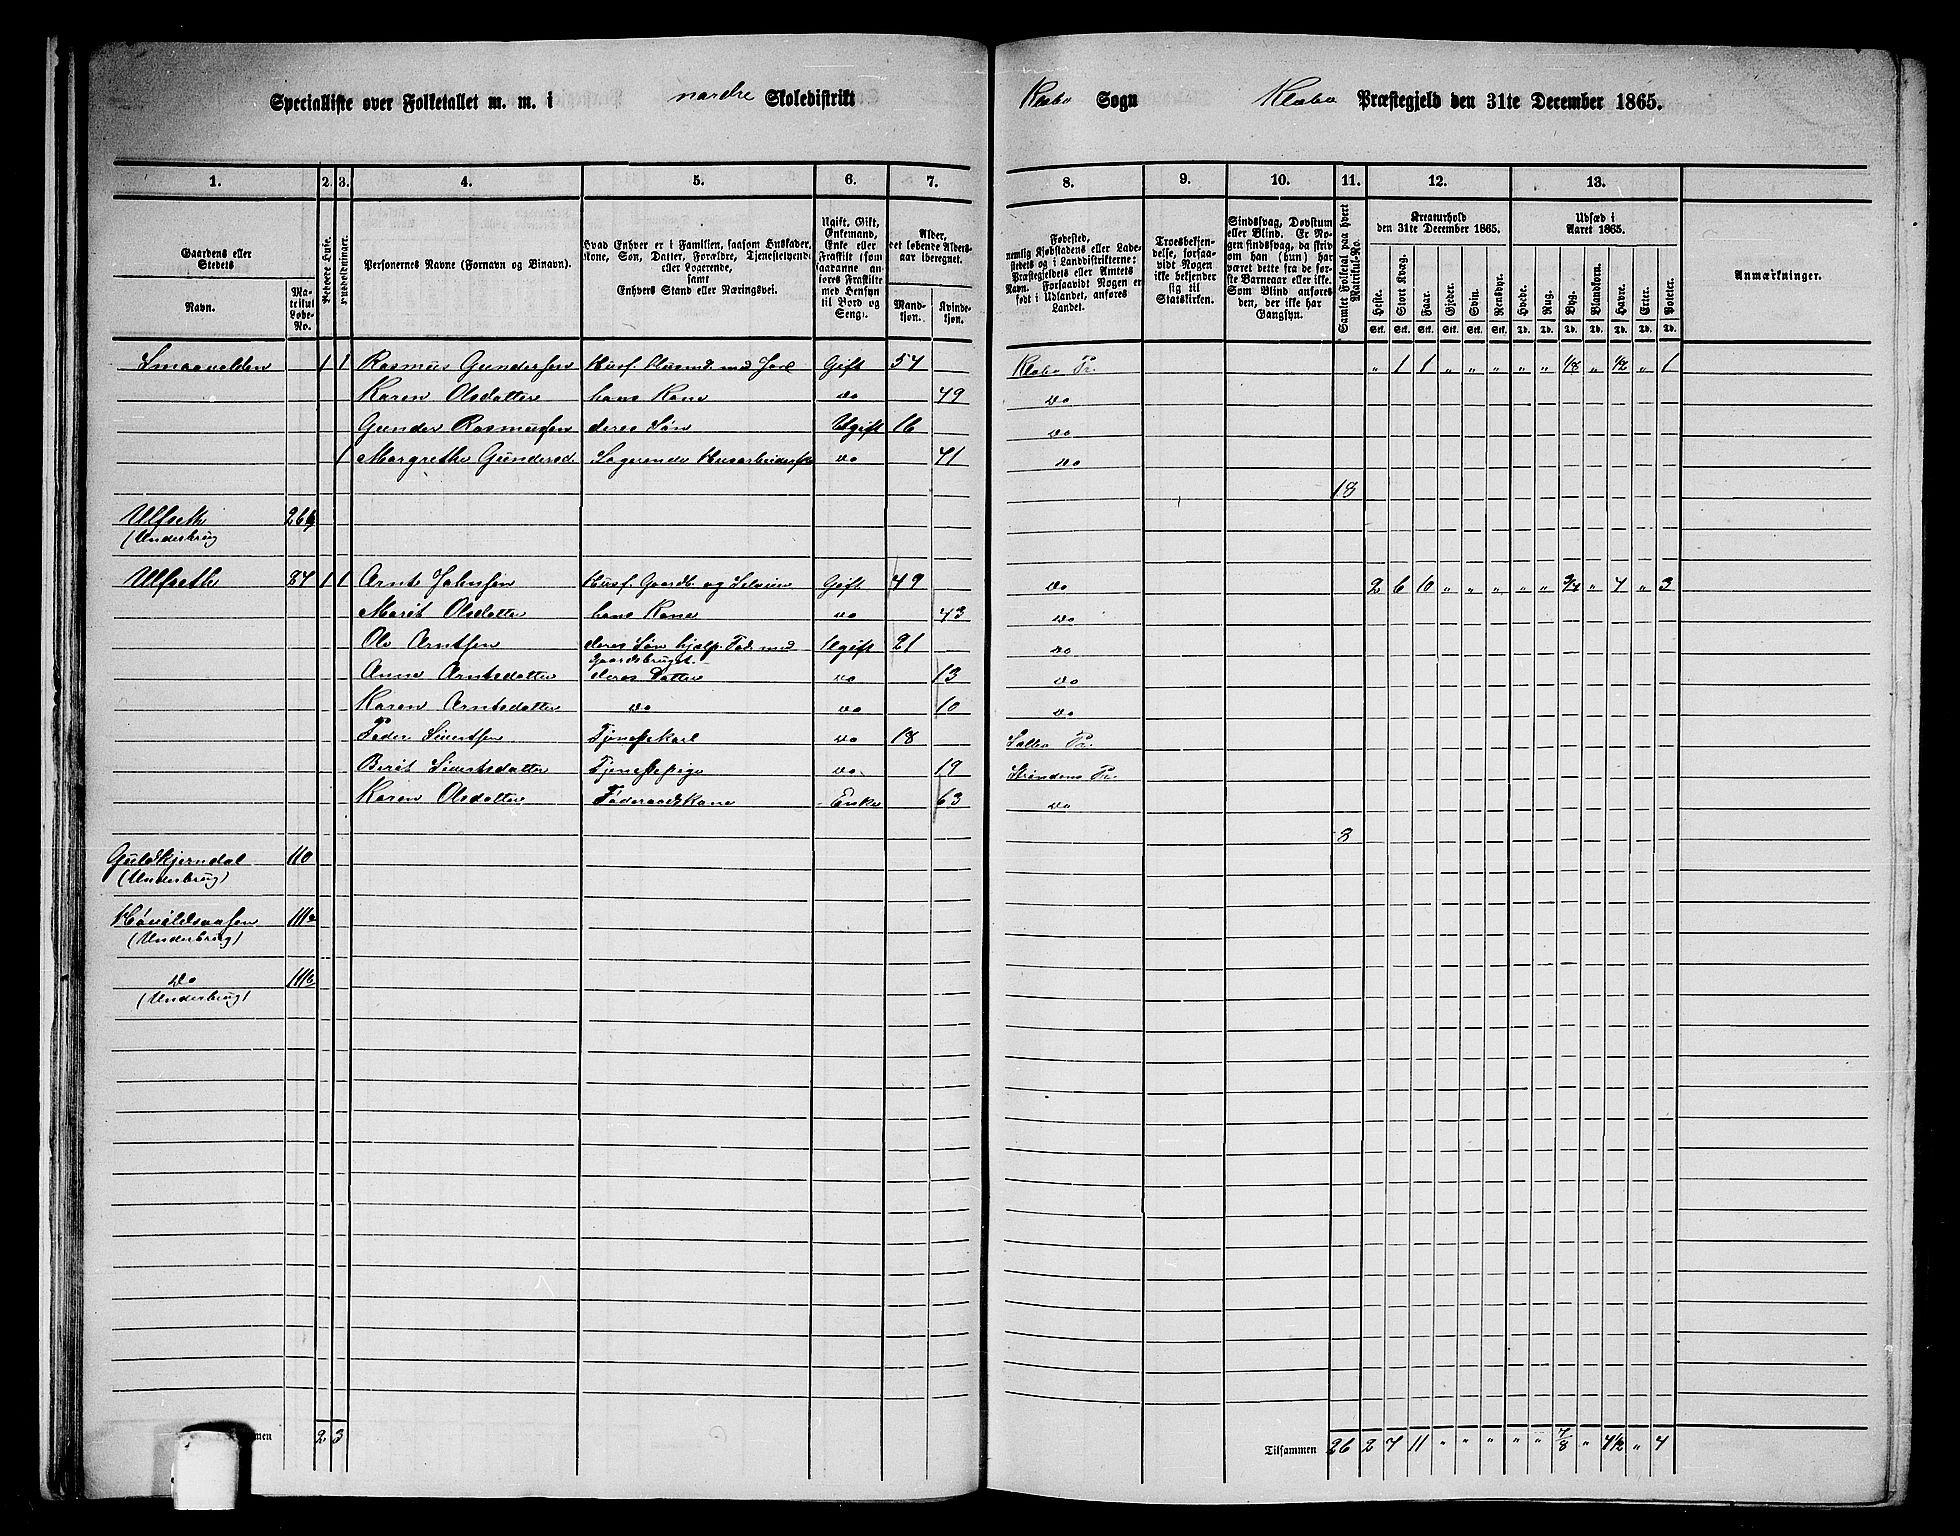 Specialliste over Folketallet m. m. i nordre Skoledistrikt Klæbo Sogn Klæbo Præstegjeld den 31te December 1865.
1. 2. 3. 4. 5. 6. 7. 8. 9. 10. 11. 12. 13.
Gaardens eller Stedets
Navn.
Matrikul Løbe-No.
Beboede Huse.
Husholdninger.
Personernes Navne (Fornavn og Binavn).
Hvad Enhver er i Familien, saasom Husfader, Kone, Søn, Datter, Forældre, Tjenestetyende eller Logerende, samt Enhvers Stand eller Næringsvei.
Ugift, Gift, Enkemand, Enke eller Fraskilt (som saadanne anføres Fraskilte med Hensyn til Bord og Seng).
Alder, det løbende Aldersaar iberegnet.
Mandkjøn. Kvindekjøn.
Fødested, nemlig Kjøbstadens eller Ladestedets og i Landdistrikterne: Præstegjeldets eller Amtets Navn. Forsaavidt Nogen er født i Udlandet, anføres Landet.
Troesbekjendelse, forsaavidt Nogen ikke bekjender sig til Statskirken.
Sindssvag, Døvstum eller Blind. Er Nogen sindssvag, da skrives om han (hun) har været dette fra de første Barneaar eller ikke. Som Blind anføres den, der ikke har Gangsyn.
Samlet Folketal paa hvert Matrikul-No.
Kreaturhold den 31te December 1865.
Heste. Stort Kvæg. Faar. Gjeder. Svin. Rensdyr.
Udsæd i Aaret 1865.
Hvede. Rug. Byg. Blandkorn. Havre. Erter. Poteter.
Stk. Stk. Stk. Stk. Stk. Stk. Td. Td. Td. Td. Td. Td. Td.
Anmærkninger.
Smaavolden 1 1 Rasmus Gundersen Husf. Husmd. med Jord Gift 54 Klæbo Pr. „ 1 1 „ „ „ „ „ 1/8 „ 1/2 „ 1
Karen Olsdatter hans Kone do 49 do
Gunder Rasmussen deres Søn Ugift 16 do
1 Margrethe Gundersd. Logerende do 41 do
18
Ulfseth 266
(Underbrug
Ulfseth 84 1 1 Arnt Johnsen Husf. Gaardb. og Selveier Gift 49 do 2 6 10 „ „ „ „ „ 3/4 „ 4 „ 3
Marit Olsdatter hans Kone do 43 do
Ole Arntsen deres Søn hjelp. Fad. med Ugift 21 do
Gaardsbruget.
Anne Arntsdatter deres Datter do 13 do
Karen Arntsdatter do do 10 do
Peder Sivertsen Tjenestekarl do 18 Selbo Pr.
Berit Sivertsdatter Tjenestepige do 19 Strindens Pr.
Karen Olsdatter Føderaadskone Enke 63 do
8
Guldkjerndal 110
(Underbrug)
111
(Underbrug)
Do 111
(Underbrug)
men 2 3
Tilsammen 26 2 7 11 „ „ „ „ „ 7/8 „ 4 1/2 „ 4